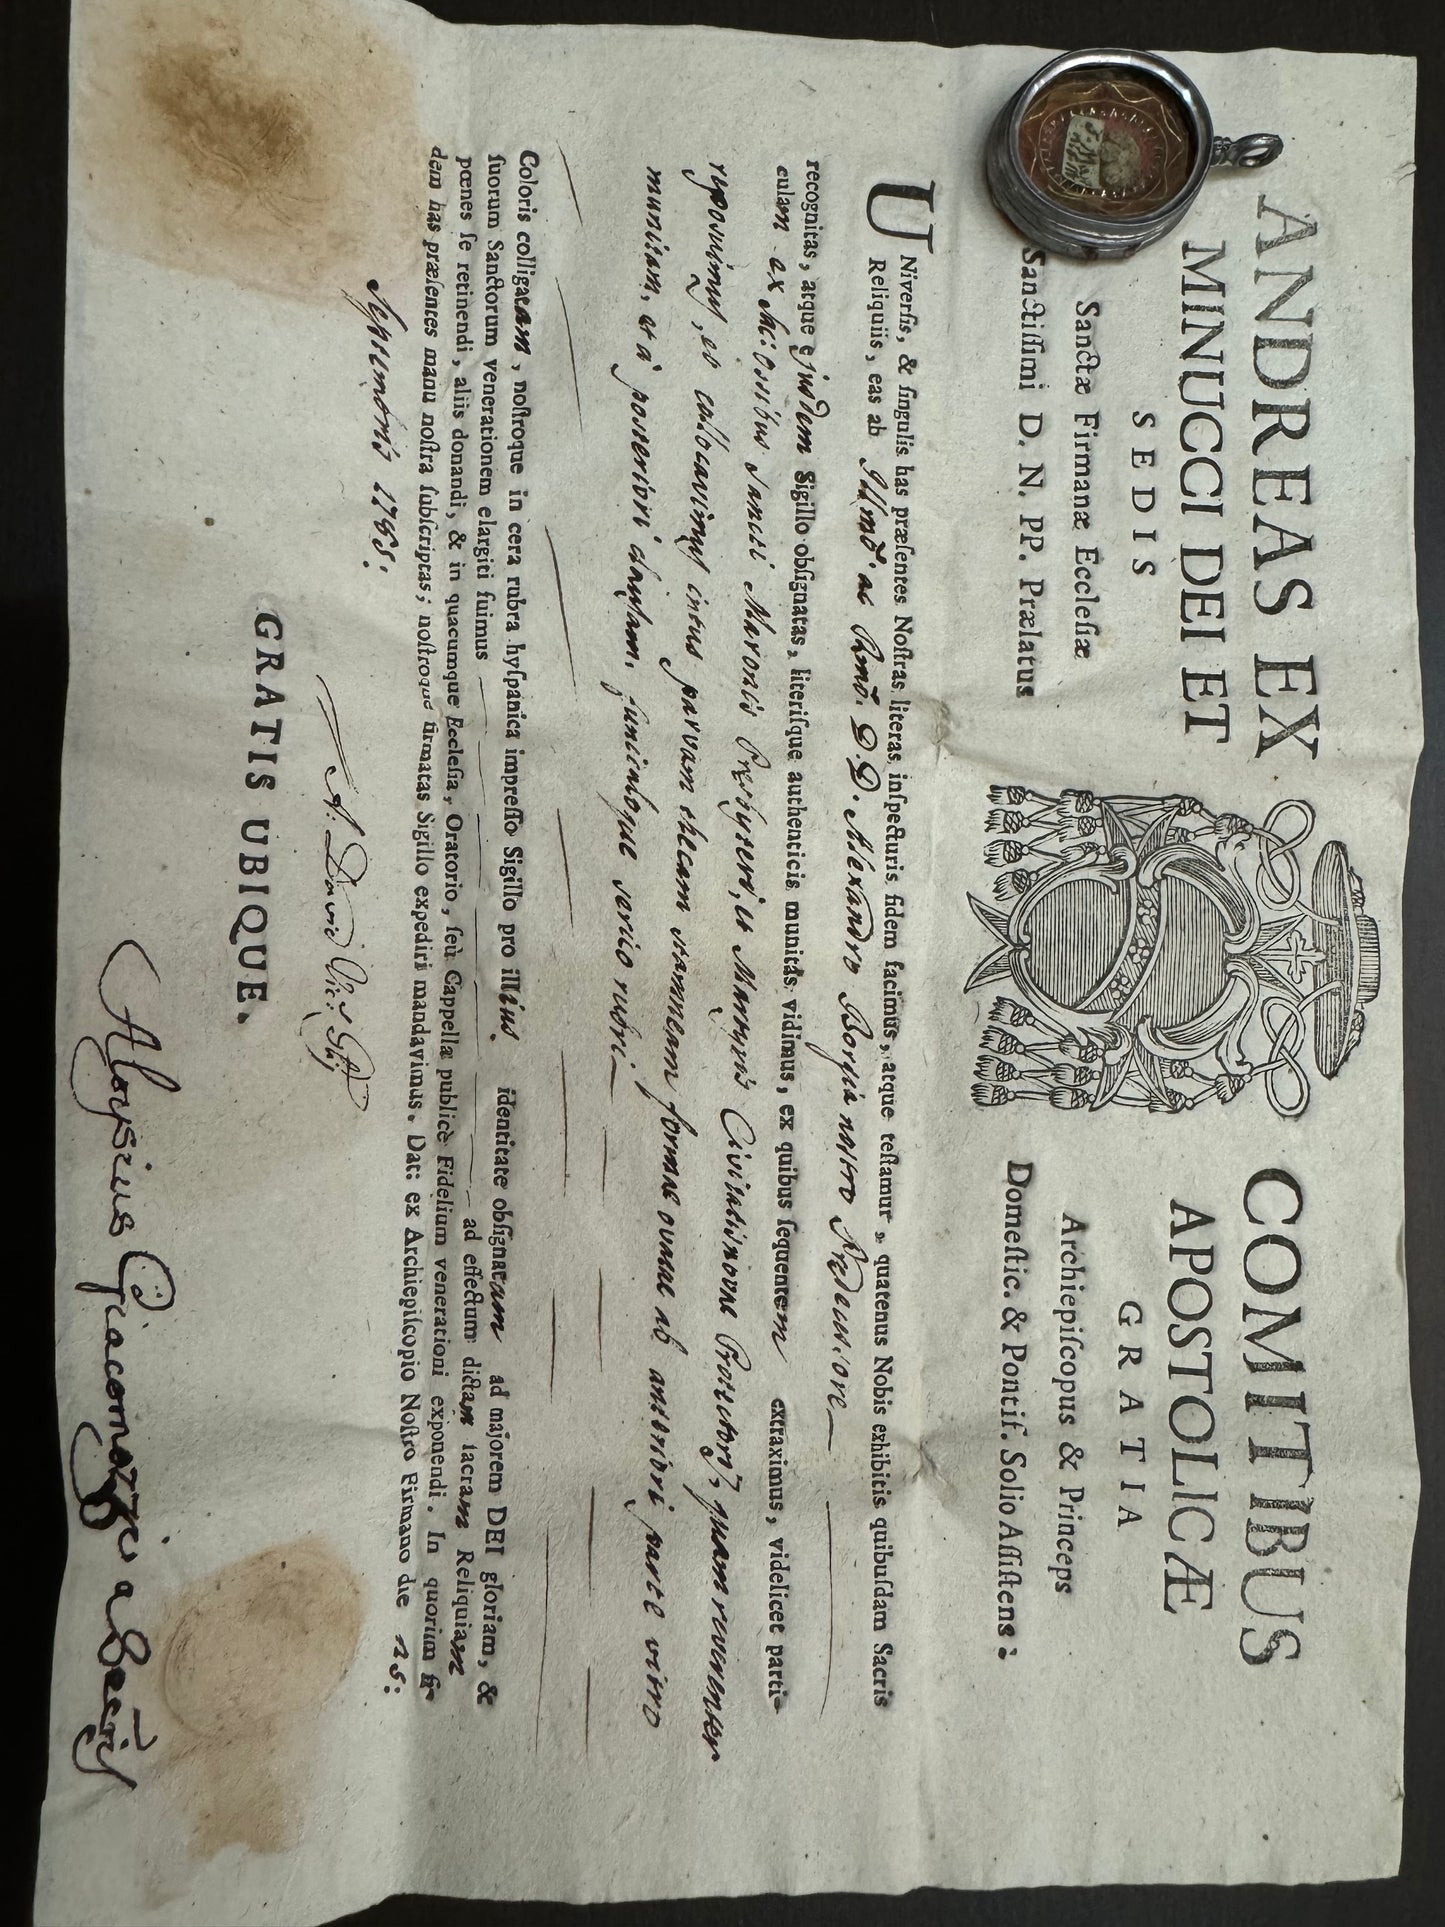 ANDREAS EX COMITIBUS
MINUCCI DEI ET APOSTOLICÆ
SEDIS GRATIA
Sanctæ Firmanæ Eccleſiæ Archiepiſcopus & Princeps
Sanctiſſimi D. N. PP. Prælatus Domeſtic. & Pontif. Solio Aſſiſtens:
UNiverſis, & ſingulis has præſentes Noſtras literas inſpecturis fidem facimus, atque teſtamur, quatenus Nobis exhibitis quibuſdam Sacris
Reliquiis, eas ab Illmō. ac Rmō. D. D. Alexandro Borgia nostro Predecessore
recognitas, atque ejusdem Sigillo obſignatas, literiſque authenticis munitas vidimus, ex quibus ſequentem extraximus, videlicet parti-
culam ex Sac: Ossibus Sancti Maronis Presbyteri, et Martyris Civitatisnovae Protectoris, quam reverenter
reposuimus, et collocavimus intus parvam thecam stanneam formae ovatae ab anteriori parte vitro
munitam, et à posteriori clausam, funiculoque serico rubri
Coloris colligatam, noſtroque in cera rubra hyſpanica impreſſo Sigillo pro illius identitate obſignatam ad majorem DEI gloriam, &
ſuorum Sanctorum venerationem elargiti fuimus ad effectum dictam ſacram Reliquiam
pœnes ſe retinendi, aliis donandi, & in quacumque Eccleſia, Oratorio, ſeù Cappella publicè Fidelium venerationi exponendi. In quorum fi-
dem has præſentes manu noſtra ſubſcriptas, noſtroque firmatas Sigillo expediri mandavimus. Dat: ex Archiepiſcopio Noſtro Firmano die 25:
Septembris 1785:
A. David Vic: Glis
GRATIS UBIQUE.
Aloysius Giacomozzi a Secretis